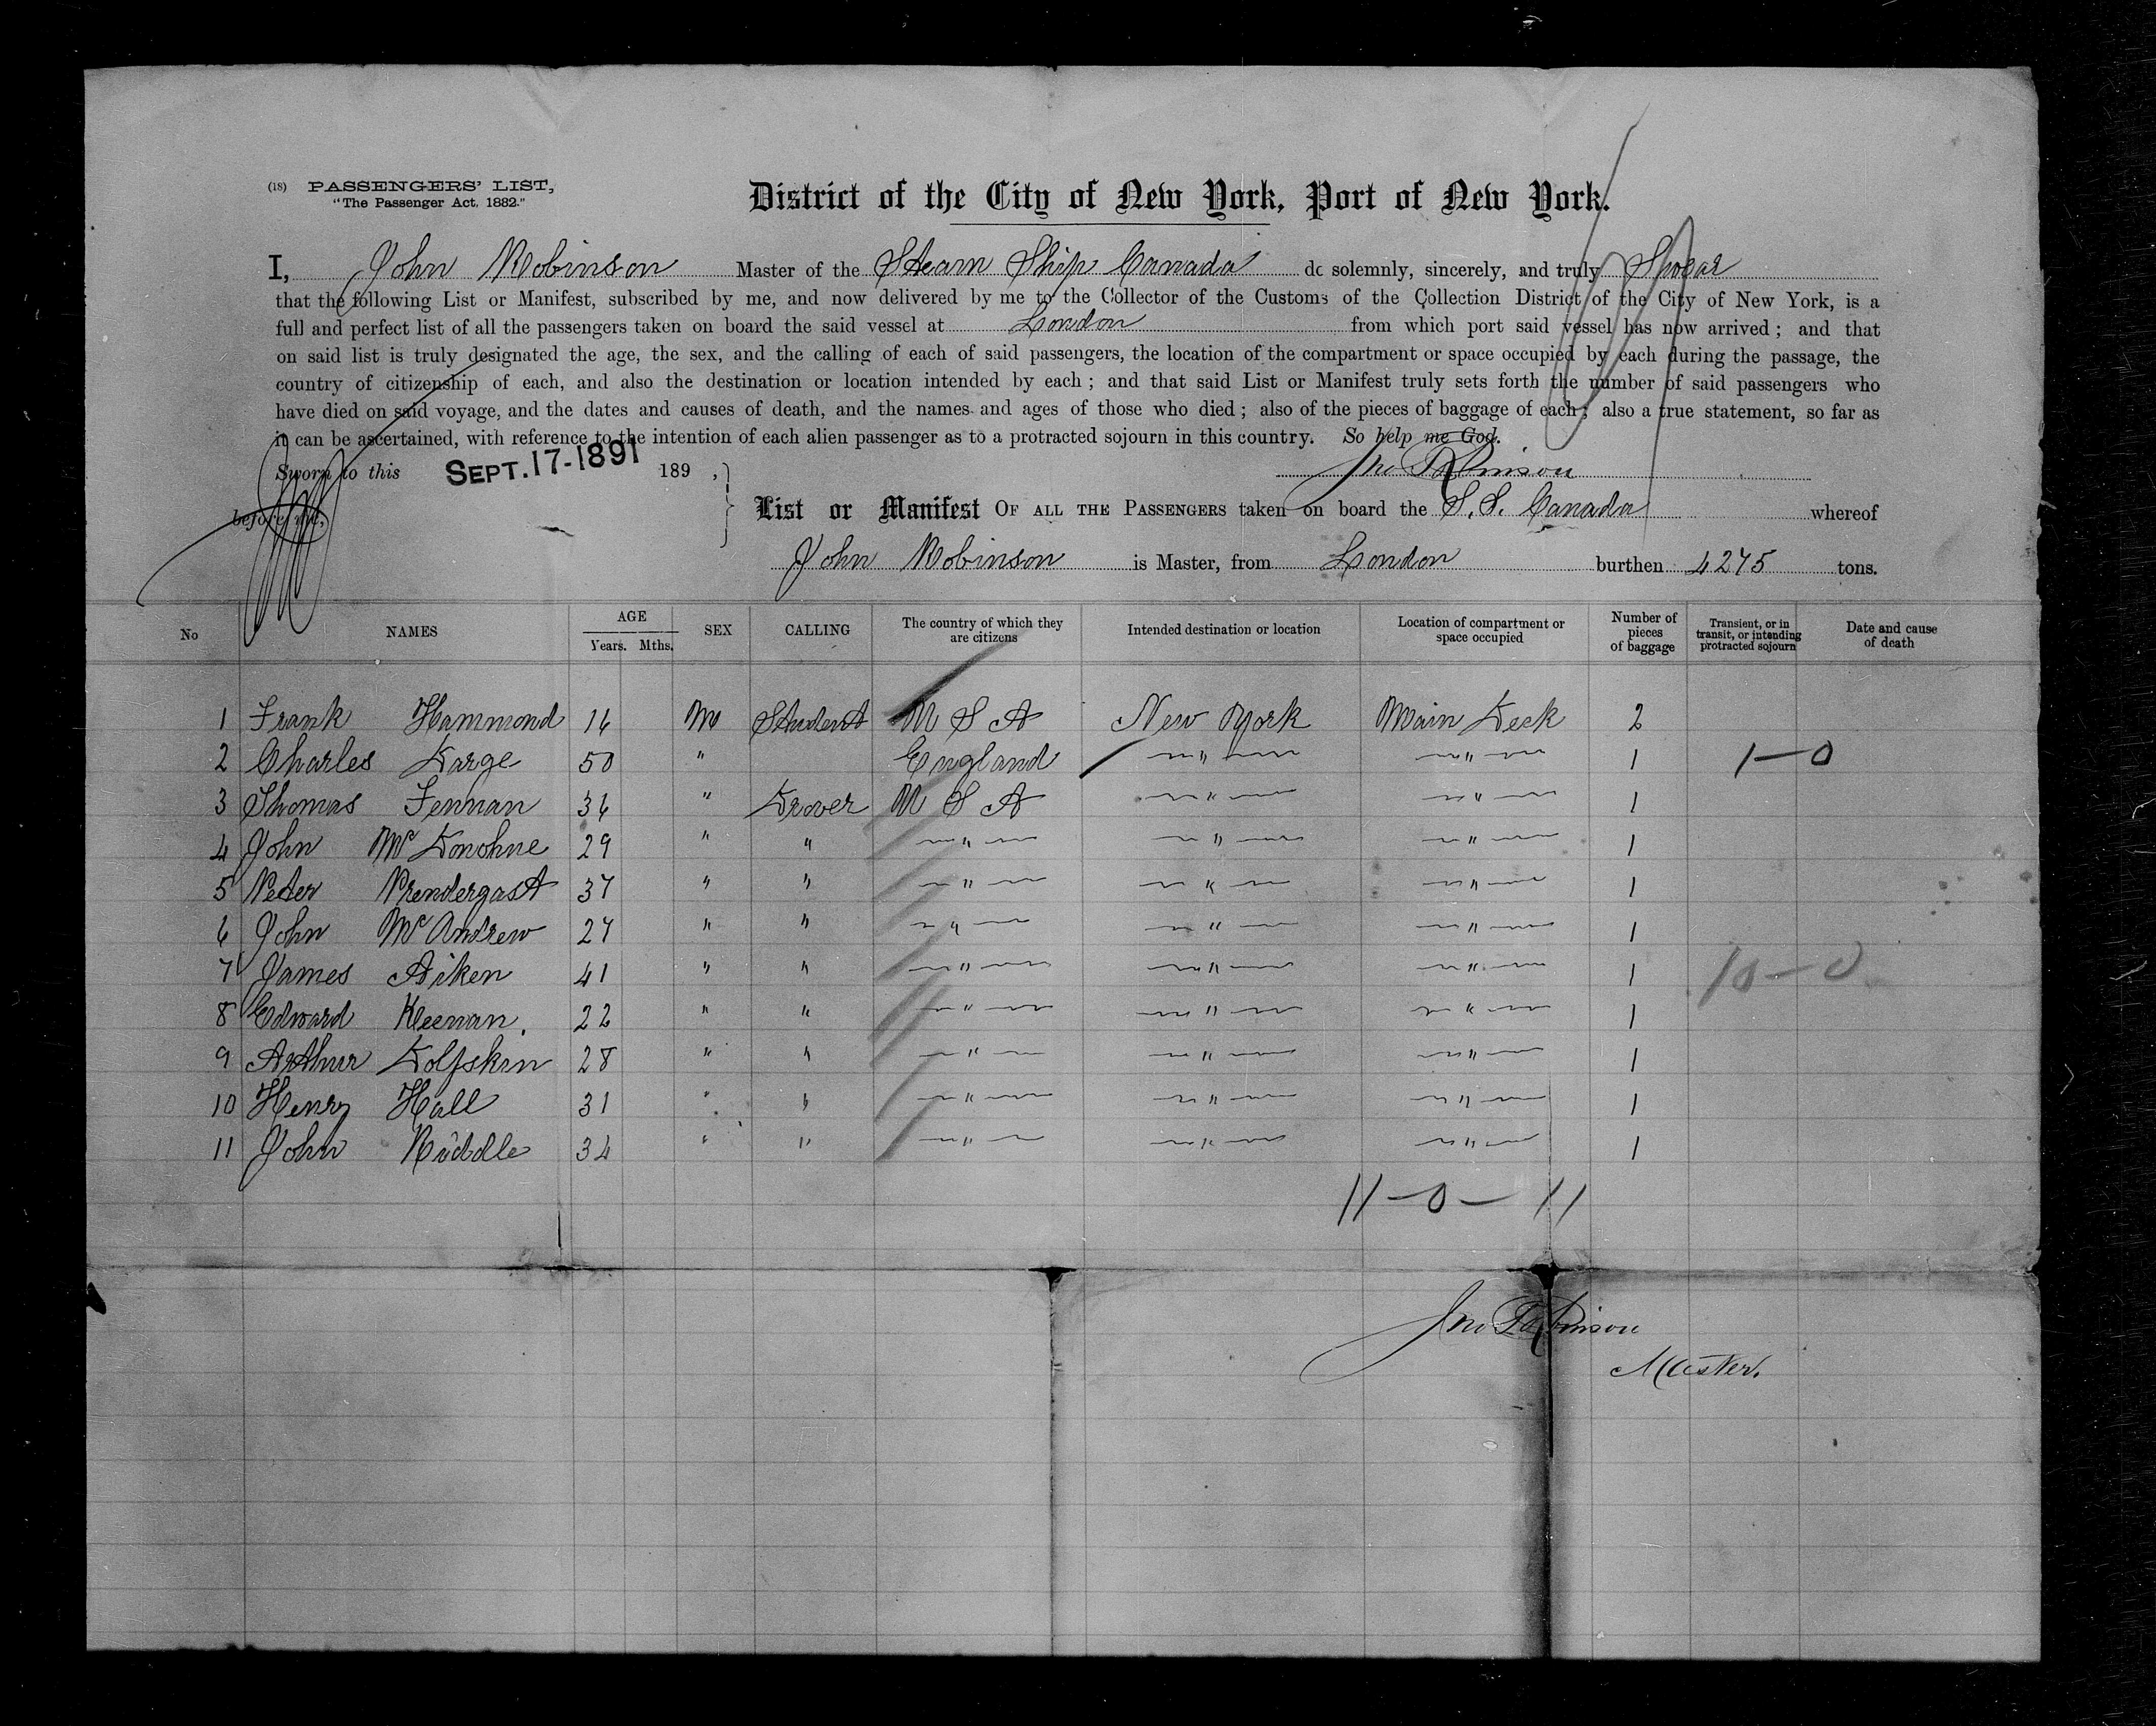 (18) PASSENGERS' LIST,
"The Passenger Act, 1882."
District of the City of New York, Port of New York.
I, John Robinson Master of the Steam Ship Canada do solemnly, sincerely, and truly Swear
that the following List or Manifest, subscribed by me, and now delivered by me to the Collector of the Customs of the Collection District of the City of New York, is a
full and perfect list of all the passengers taken on board the said vessel at London from which port said vessel has now arrived; and that
on said list is truly designated the age, the sex, and the calling of each of said passengers, the location of the compartment or space occupied by each during the passage, the
country of citizenship of each, and also the destination or location intended by each; and that said List or Manifest truly sets forth the number of said passengers who
have died on said voyage, and the dates and causes of death, and the names and ages of those who died; also of the pieces of baggage of each; also a true statement, so far as
it can be ascertained, with reference to the intention of each alien passenger as to a protracted sojourn in this country. So help me God.
Sworn to this SEPT. 17-1891 189 , Jno Robinson
before me,
List or Manifest OF ALL THE PASSENGERS taken on board the S.S. Canada whereof
John Robinson is Master, from London burthen 4275 tons.
No NAMES AGE Years. Mths. SEX CALLING The country of which they are citizens Intended destination or location Location of compartment or space occupied Number of pieces of baggage Transient, or in transit, or intending protracted sojourn Date and cause of death
1 Frank Hammond 16 M Student U S A New York Main Deck 2
2 Charles Large 50 " England " " 1 1-0
3 Thomas Fennan 36 " Drover U S A " " 1
4 John McDonohue 29 " " " " " 1
5 Peter Prendergast 37 " " " " " 1
6 John McAndrew 27 " " " " " 1
7 James Aiken 41 " " " " " 1 10-0
8 Edward Keenan. 22 " " " " " 1
9 Arthur Dolfskin 28 " " " " " 1
10 Henry Hall 31 " " " " " 1
11 John Riddle 34 " " " " " 1
11-0-11
Jno Robinson
Master.